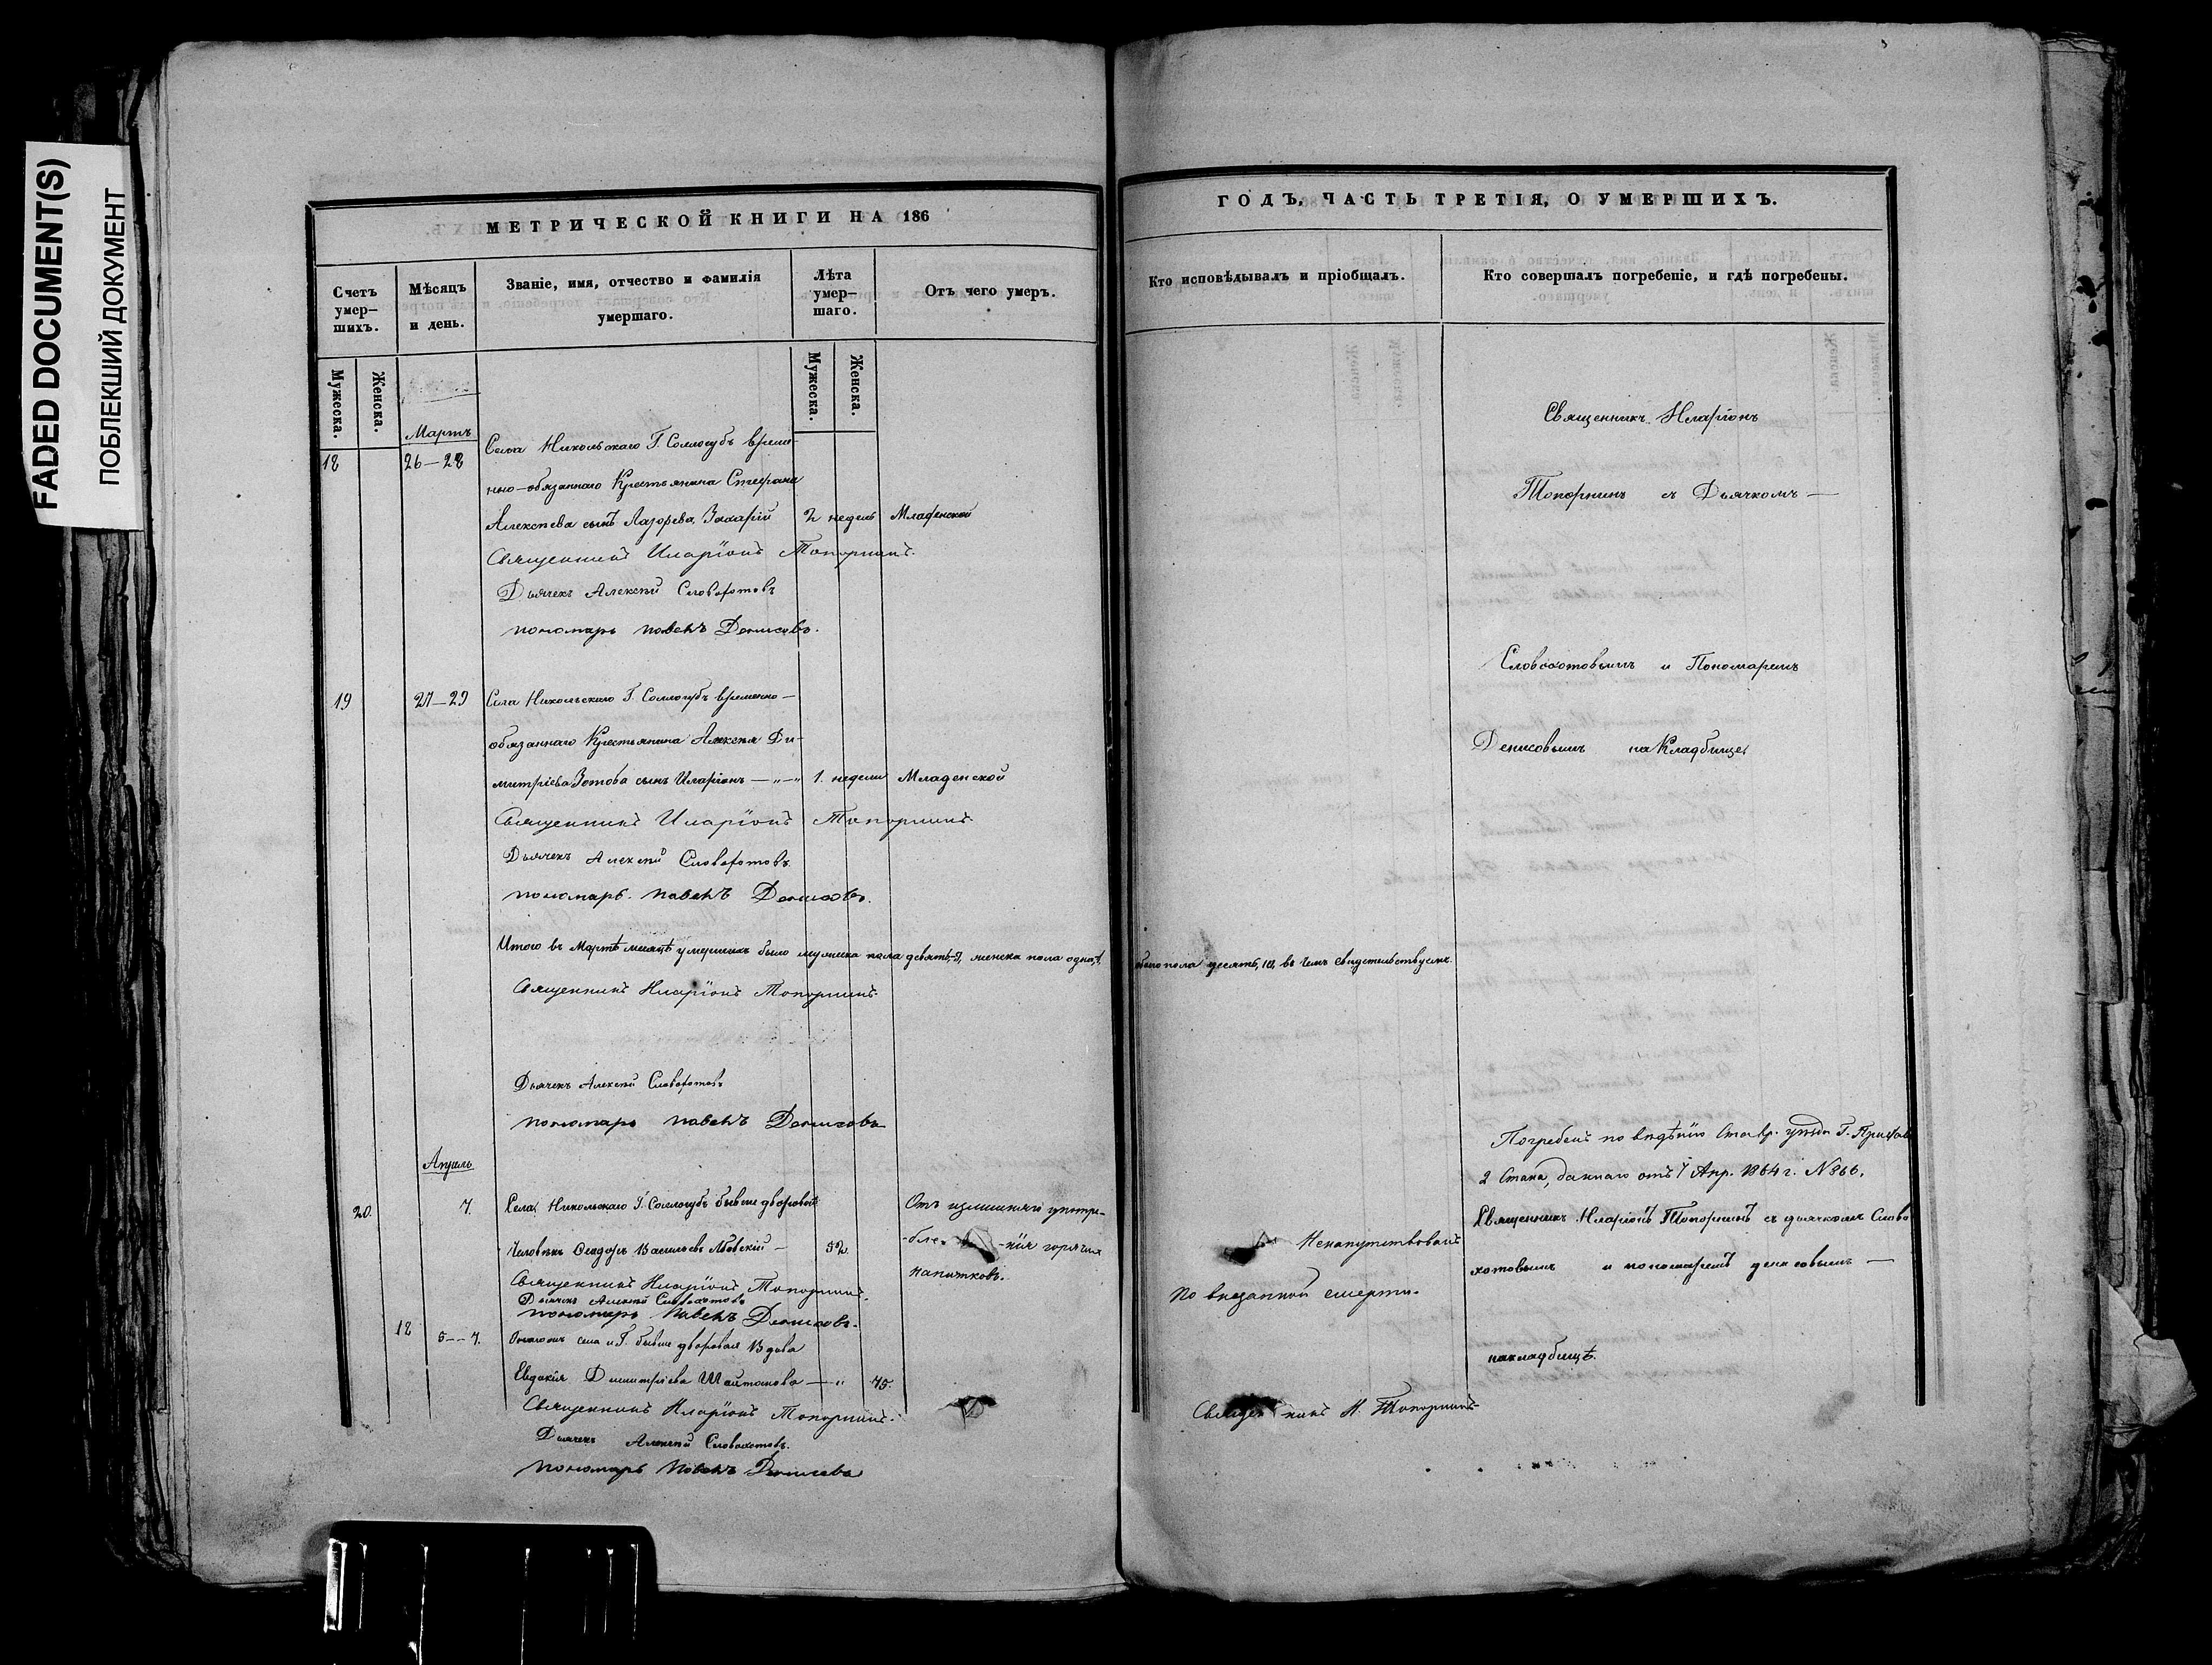 FADED DOCUMENT(S)
ПОБЛЕКШИЙ ДОКУМЕНТ
МЕТРИЧЕСКОЙ КНИГИ НА 186
Счетъ умер-
шихъ.
Мѣсяцъ
и день.
Званіе, имя, отчество и фамилія
умершаго.
Лѣта
умер-
шаго.
Отъ чего умеръ.
Мужеска.
Женска.
Мужеска.
Женска.
Мартъ
18 26—28 Села Никольскаго Г. Соллогубъ време-
нно-обязаннаго Крестьянина Стефана
Алексѣева сынъ Лазарева Захарій 2 недель Младенской
Священникъ Иларіонъ Топорнинъ.
Дьячекъ Алексѣй Словохотовъ
пономарь павелъ Денисовъ.
19 27—29 Села Никольскаго Г. Соллогубъ временно—
обязаннаго Крестьянина Алексѣя Ди-
митріева Зотова сынъ Иларіонъ 1. недели Младенской
Священникъ Иларіонъ Топорнинъ
Дьячекъ Алексѣй Словохотовъ
пономарь павелъ Денисовъ.
Итого въ Мартѣ месяцѣ умершихъ было мужеска пола девять, 9, женска пола одна, 1,
Священникъ Иларіонъ Топорнинъ.
Дьячекъ Алексѣй Словохотовъ
пономарь павелъ Денисовъ
Апрель
20. 7. Села Никольскаго Г. Соллогубъ бывше дворовой
Человѣкъ Ѳеодоръ Васильевъ — 52. Отъ излишняго употре-
-бле -нія горячихъ
напитковъ.
Священникъ Иларіонъ Топорнинъ.
Дьячекъ Алексѣй Словохотовъ
пономарь павелъ Денисовъ.
18 5—7. села и Г. бывше дворовая Вдова
Евдокія Димитріева — 75.
Священникъ Иларіонъ Топорнинъ.
Дьячекъ Алексѣй Словохотовъ.
пономарь павелъ Денисовъ
ГОДЪ, ЧАСТЬ ТРЕТІЯ, О УМЕРШИХЪ.
Кто исповѣдывалъ и пріобщалъ.
Кто совершалъ погребеніе, и гдѣ погребены.
Священникъ Иларіонъ
Топорнинъ съ Дьячкомъ —
Словохотовымъ и Пономаремъ
Денисовымъ на Кладбище
обоего пола десять, 10, въ чемъ свидетельствуемъ.
Погребенъ по Ставр. уезда Г. Пристава
2 Стана, даннаго отъ 7 Апр. 1864 г. N 866.
Священникъ Иларіонъ Топорнинъ съ дьячкомъ Слово
хотовымъ и пономаремъ денисовымъ —
на кладбищѣ.
Ненапутствованъ
по внезапной смерти.
Священникъ И. Топорнинъ